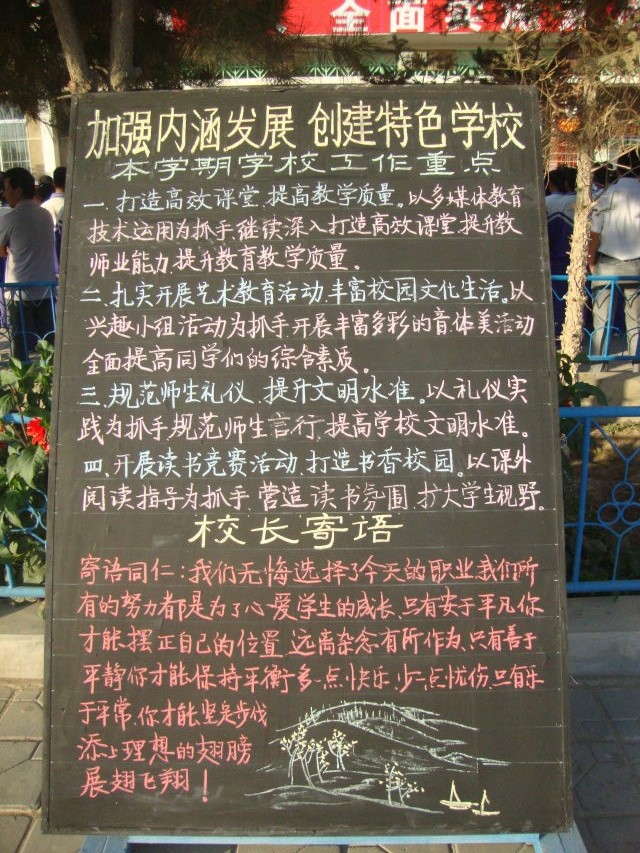 全面
加强内涵发展 创建特色学校
本学期学校工作重点
一、打造高效课堂,提高教学质量。以多媒体教育
技术运用为抓手继续深入打造高效课堂,提升教
师业能力,提升教育教学质量。
二、扎实开展艺术教育活动,丰富校园文化生活。以
兴趣小组活动为抓手开展丰富多彩的音体美活动
全面提高同学们的综合素质。
三、规范师生礼仪,提升文明水准。以礼仪实
践为抓手,规范师生言行,提高学校文明水准。
四、开展读书竞赛活动,打造书香校园。以课外
阅读指导为抓手,营造读书氛围,扩大学生视野。
校长寄语
寄语同仁:我们无悔选择了今天的职业,我们所
有的努力都是为了心爱学生的成长,只有安于平凡,你
才能摆正自己的位置,远离杂念有所作为,只有善于
平静你才能保持平衡多一点快乐,少一点忧伤,只有乐
于平常,你才能坚定步伐
添上理想的翅膀
展翅飞翔!